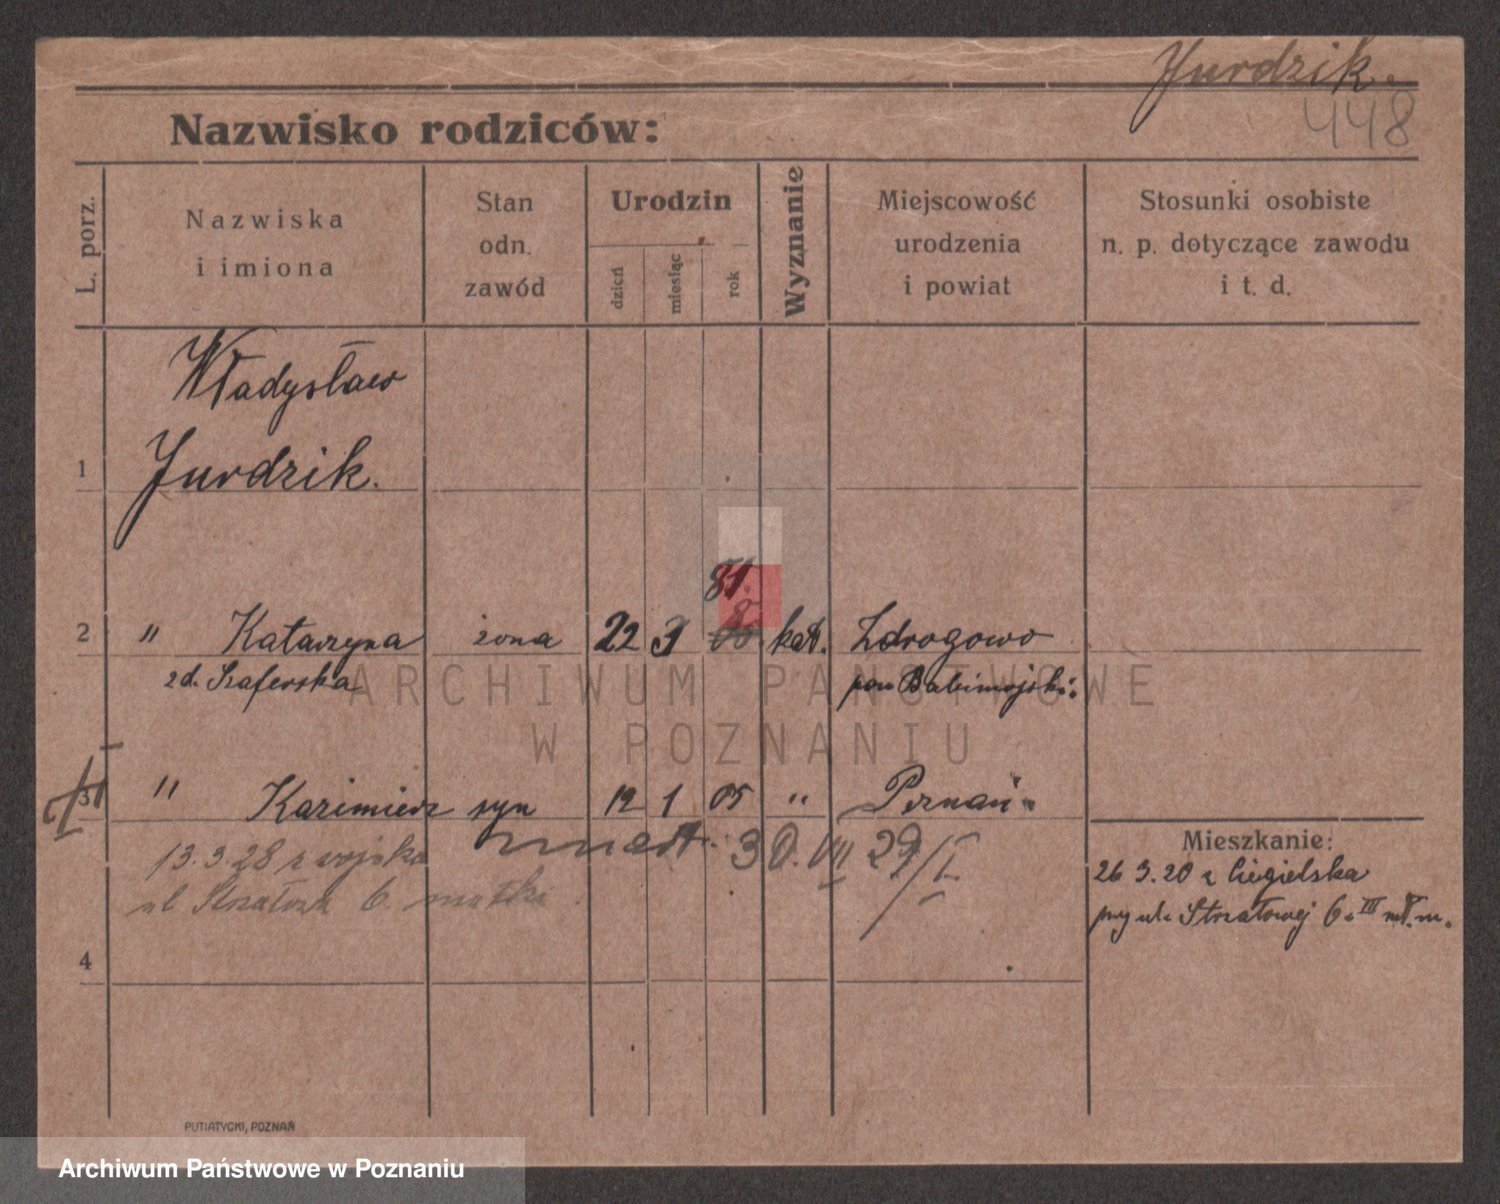 Jurdzik.
448
Nazwisko rodziców:
L. porz.
Nazwiska
i imiona
Stan
odn.
zawód
Urodzin
dzień
miesiąc
rok
Wyznanie
Miejscowość
urodzenia
i powiat
Stosunki osobiste
n. p. dotyczące zawodu
i t. d.
Władysław
1 Jurdzik.
81.
2 " Katarzyna żona 22 3 kat. Zdrogowo
zd. Szaferska pow Babimojski
3 " Kazimierz syn 12 1 05 " Poznań
13.3.28 z wojska zmarł. 30. VII 29/I
ul Strzałowa 6. matki
4
Mieszkanie:
26 3.20 z Ciegielska
przy ul. Strzałowej 6. III
PUTIATYCKI, POZNAŃ
ARCHIWUM PAŃSTWOWE
W POZNANIU
Archiwum Państwowe w Poznaniu